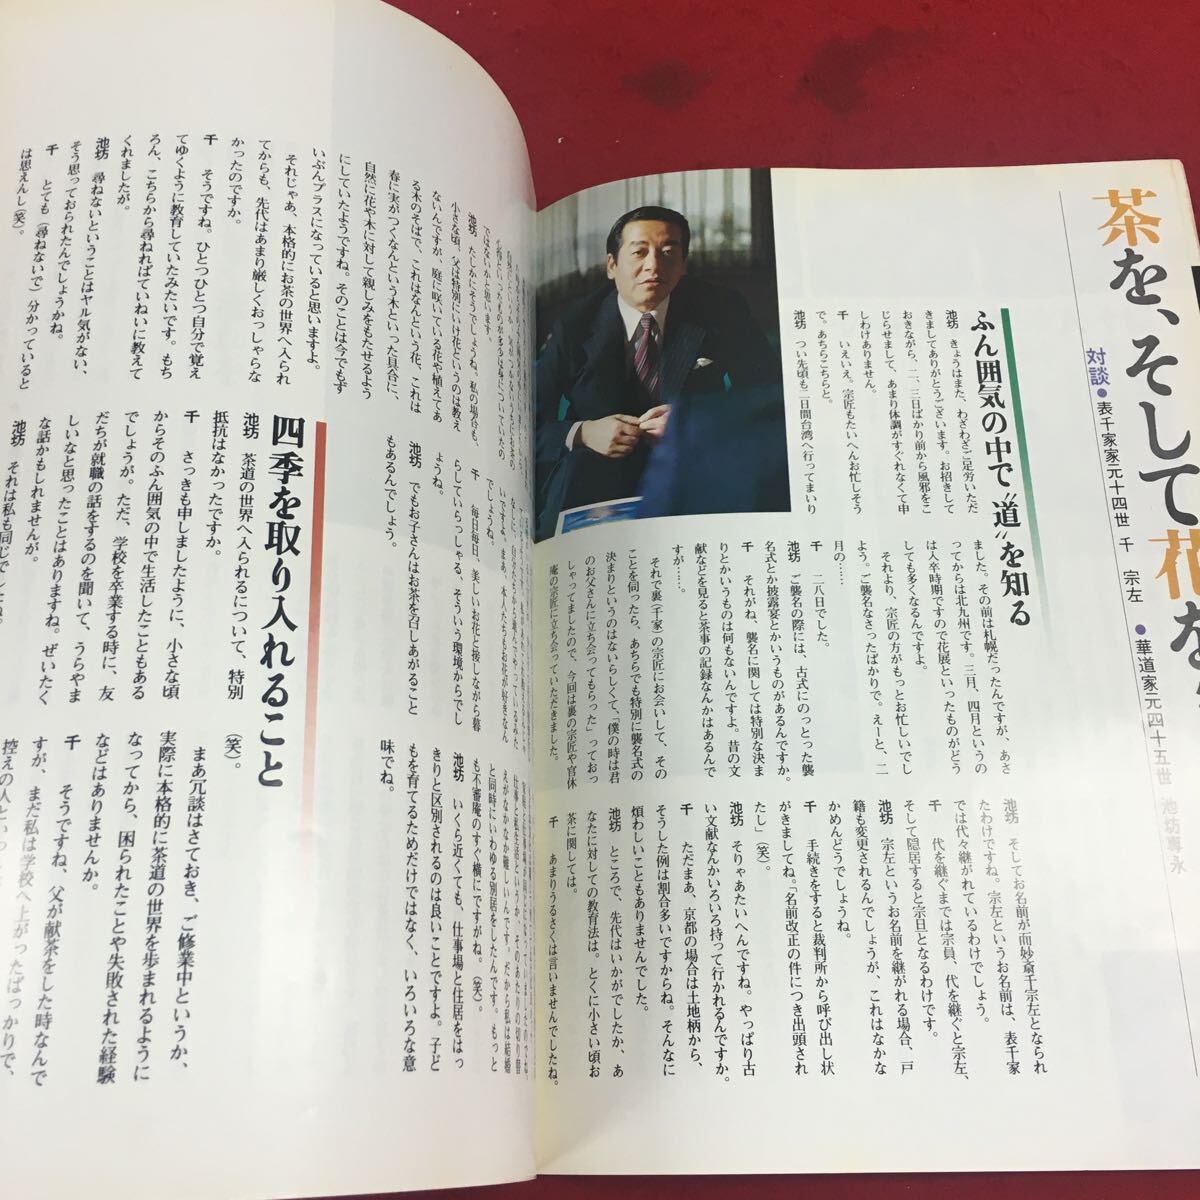 茶を、そして花を
対談●表千家家元十四世 千 宗左 ●華道家元四十五世 池坊専永
ふん囲気の中で〝道〟を知る
池坊 きょうはまた、わざわざご足労いただ
きましてありがとうございます。お招きして
おきながら、二、三日ばかり前から風邪をこ
じらせまして、あまり体調がすぐれなくて申
しわけありません。
千 いえいえ。宗匠もたいへんお忙しそう
で。あちらこちらと。
池坊 つい先頃も二日間台湾へ行ってまいり
ました。その前は札幌だったんですが、あさ
ってからは北九州です。三月、四月というの
は入卒時期ですので花展といったものがどう
しても多くなるんですよ。
それより、宗匠の方がもっとお忙しいでし
ょう。ご襲名なさったばかりで。えーと、二
月の……
千 二八日でした。
池坊 ご襲名の際には、古式にのっとった襲
名式とか披露宴とかいうものがあるんですか。
千 それがね、襲名に関しては特別な決ま
りとかいうものは何もないんですよ。昔の文
献などを見ると茶事の記録なんかはあるんで
すが……。
それで裏(千家)の宗匠にお会いして、その
ことを伺ったら、あちらでも特別に襲名式の
決まりというのはないらしくて、「僕の時は君
のお父さんに立ち会ってもらった」っておっ
しゃってましたので、今回は裏の宗匠や官休
庵の宗匠に立ち会っていただきました。
池坊 そしてお名前が而妙斎千宗左となられ
たわけですね。宗左というお名前は、表千家
では代々継がれているわけでしょう。
千 代を継ぐまでは宗員、代を継ぐと宗左、
そして隠居すると宗旦となるわけです。
池坊 宗左というお名前を継がれる場合、戸
籍も変更されるんでしょうが、これはなかな
かめんどうでしょうね。
千 手続きをすると裁判所から呼び出し状
がきましてね。「名前改正の件につき出頭され
たし」(笑)。
池坊 そりゃあたいへんですね。やっぱり古
い文献なんかいろいろ持って行かれるんですか。
千 ただまあ、京都の場合は土地柄から、
そうした例は割合多いですからね。そんなに
煩わしいこともありませんでした。
池坊 ところで、先代はいかがでしたか、あ
なたに対しての教育法は。とくに小さい頃お
茶に関しては。
千 あまりうるさくは言いませんでしたね。
ではないかと思います。
池坊 たしかにそうでしょうね。私の場合も、
小さな頃、父は特別にいけ花というのは教え
ないんですが、庭に咲いている花や植えてあ
る木のそばで、これはなんという花、これは
春に実がつくなんという木といった具合に、
自然に花や木に対して親しみをもたせるよう
にしていたようですね。そのことは今でもず
いぶんプラスになっていると思いますよ。
それじゃあ、本格的にお茶の世界へ入られ
てからも、先代はあまり厳しくおっしゃらな
かったのですか。
千 そうですね。ひとつひとつ自分で覚え
てゆくように教育していたみたいです。もち
ろん、こちらから尋ねればていねいに教えて
くれましたが。
池坊 尋ねないということはヤル気がない、
そう思っておられたんでしょうかね。
千 とても(尋ねないで)分かっていると
は思えんし(笑)。
でしょうね。
千 毎日毎日、美しいお花と接しながら暮
らしていらっしゃる、そういう環境からでし
ょうね。
池坊 でもお子さんはお茶を召しあがること
もあるんでしょう。
四季を取り入れること
池坊 茶道の世界へ入られるについて、特別
抵抗はなかったですか。
千 さっきも申しましたように、小さな頃
からそのふん囲気の中で生活したこともある
でしょうが。ただ、学校を卒業する時に、友
だちが就職の話をするのを聞いて、うらやま
しいなと思ったことはありますね。ぜいたく
な話かもしれませんが。
池坊 それは私も同じでしたね。
と同時にいわゆる別居をしたんです。もっと
も不審庵のすぐ横にですがね。(笑)。
池坊 いくら近くても、仕事場と住居をはっ
きりと区別されるのは良いことですよ。子ど
もを育てるためだけではなく、いろいろな意
味でね。
(笑)。
まあ冗談はさておき、ご修業中というか、
実際に本格的に茶道の世界を歩まれるように
なってから、困られたことや失敗された経験
などはありませんか。
千 そうですね、父が献茶をした時なんで
すが、まだ私は学校へ上がったばっかりで、